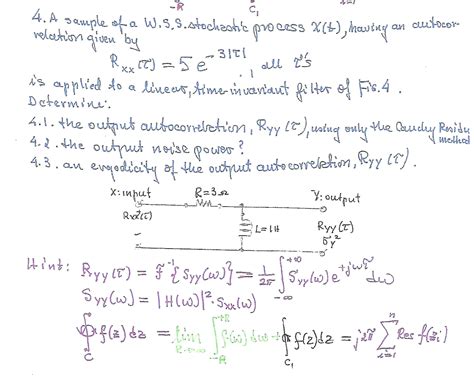 -R C₁
4. A sample of a W.S.S. stochastic process X(t), having an autocor-
relation given by
Rxx(τ) = 5 e^-3|τ| , all τ's
is applied to a linear, time-invariant filter of Fig. 4.
Determine:
4.1. the output autocorrelation, Ryy(τ), using only the Cauchy Residu method
4.2. the output noise power?
4.3. an ergodicity of the output autocorrelation, Ryy(τ).
X: input R=3Ω Y: output
Rxx(τ) L=1H Ryy(τ)
σy²
Hint: Ryy(τ) = F⁻¹{Syy(ω)} = 1/2π ∫_-∞^+∞ Syy(ω) e^+jωτ dω
Syy(ω) = |H(ω)|² · Sxx(ω)
∮_C f(z)dz = lim_R→∞ ∫_-R^+R f(ω)dω + ∮_C₁ f(z)dz = j2π Σ_i=1^n Res f(zi)